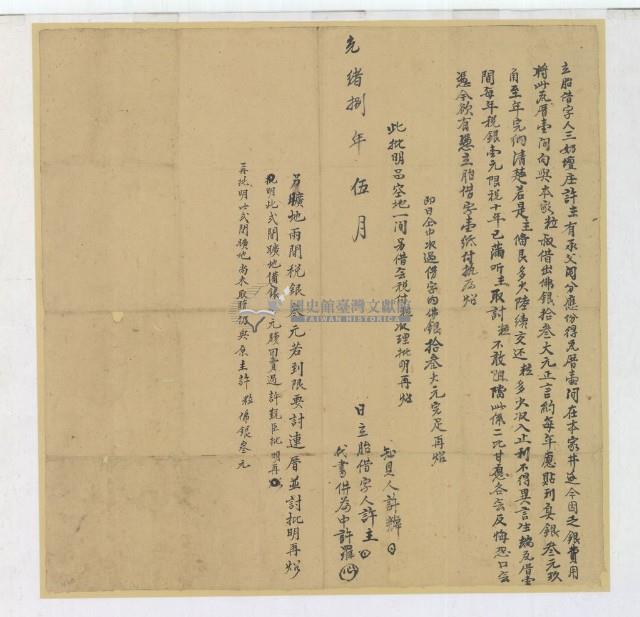 立胎借字人三塊壇庄許主有承父鬮分應份得瓦厝壹間在本家井邊今因乏銀費用
將此瓦厝壹間向與本家粒叔借出佛銀拾叁大元正言約每年應貼利息銀叁元玖
角至年完納清楚若是主條艮多少陸續交还粒多少收入止利不得異言生端瓦厝壹
間每年税銀壹元限税十年已滿听主取討粒不敢阻擋此係二比甘愿各無反悔恐口無
憑今欲有憑立胎借字壹紙付執為炤
即日仝中收過借字內佛銀拾叁大元完足再炤
此批明呂空地一間另借無税付粒收理批明再炤
知見人許轔
日立胎借字人許主
代書併為中許羅
光緒捌年伍月
另曠地兩間税銀叁元若到限要討連厝並討批明再炤
批明此弍間曠地備銀元贖回賣過許觀臣批明再
再批明此弍間曠地尚未取贖與原主許粒佛銀叁元
國史館臺灣文獻館
TAIWAN HISTORICA